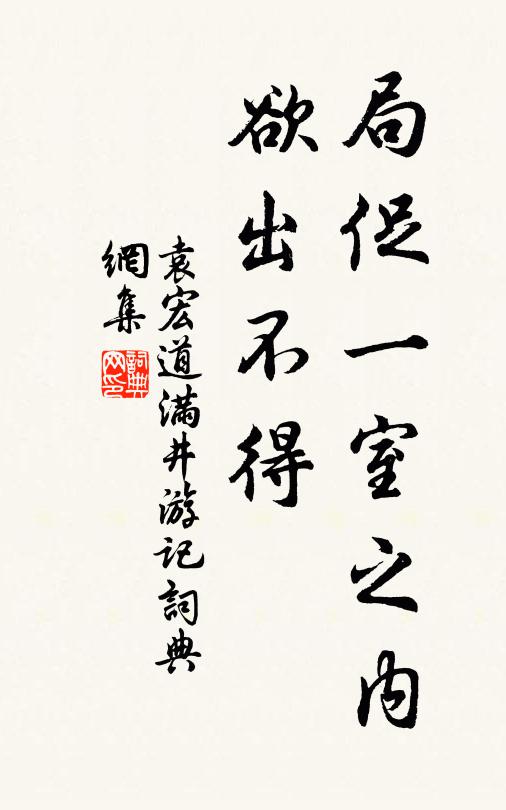 局促一室之內
欲出不得
袁宏道滿井游記詞典
網集
詞典
网印